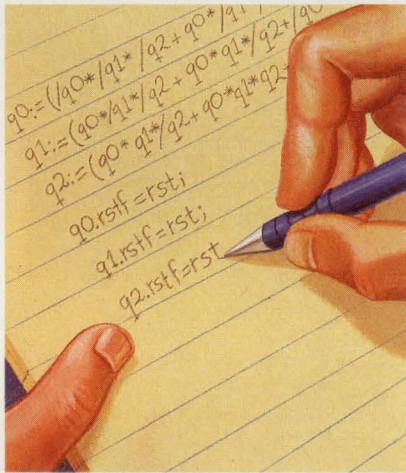 q0:=(/q0*/q1*/q2+q0*/q1
q1:=(q0*/q1*/q2+q0*q1*/q2+/q0
q2:=(q0*q1*/q2+q0*q1*q2+
q0.rstf=rst;
q1.rstf=rst;
q2.rstf=rst